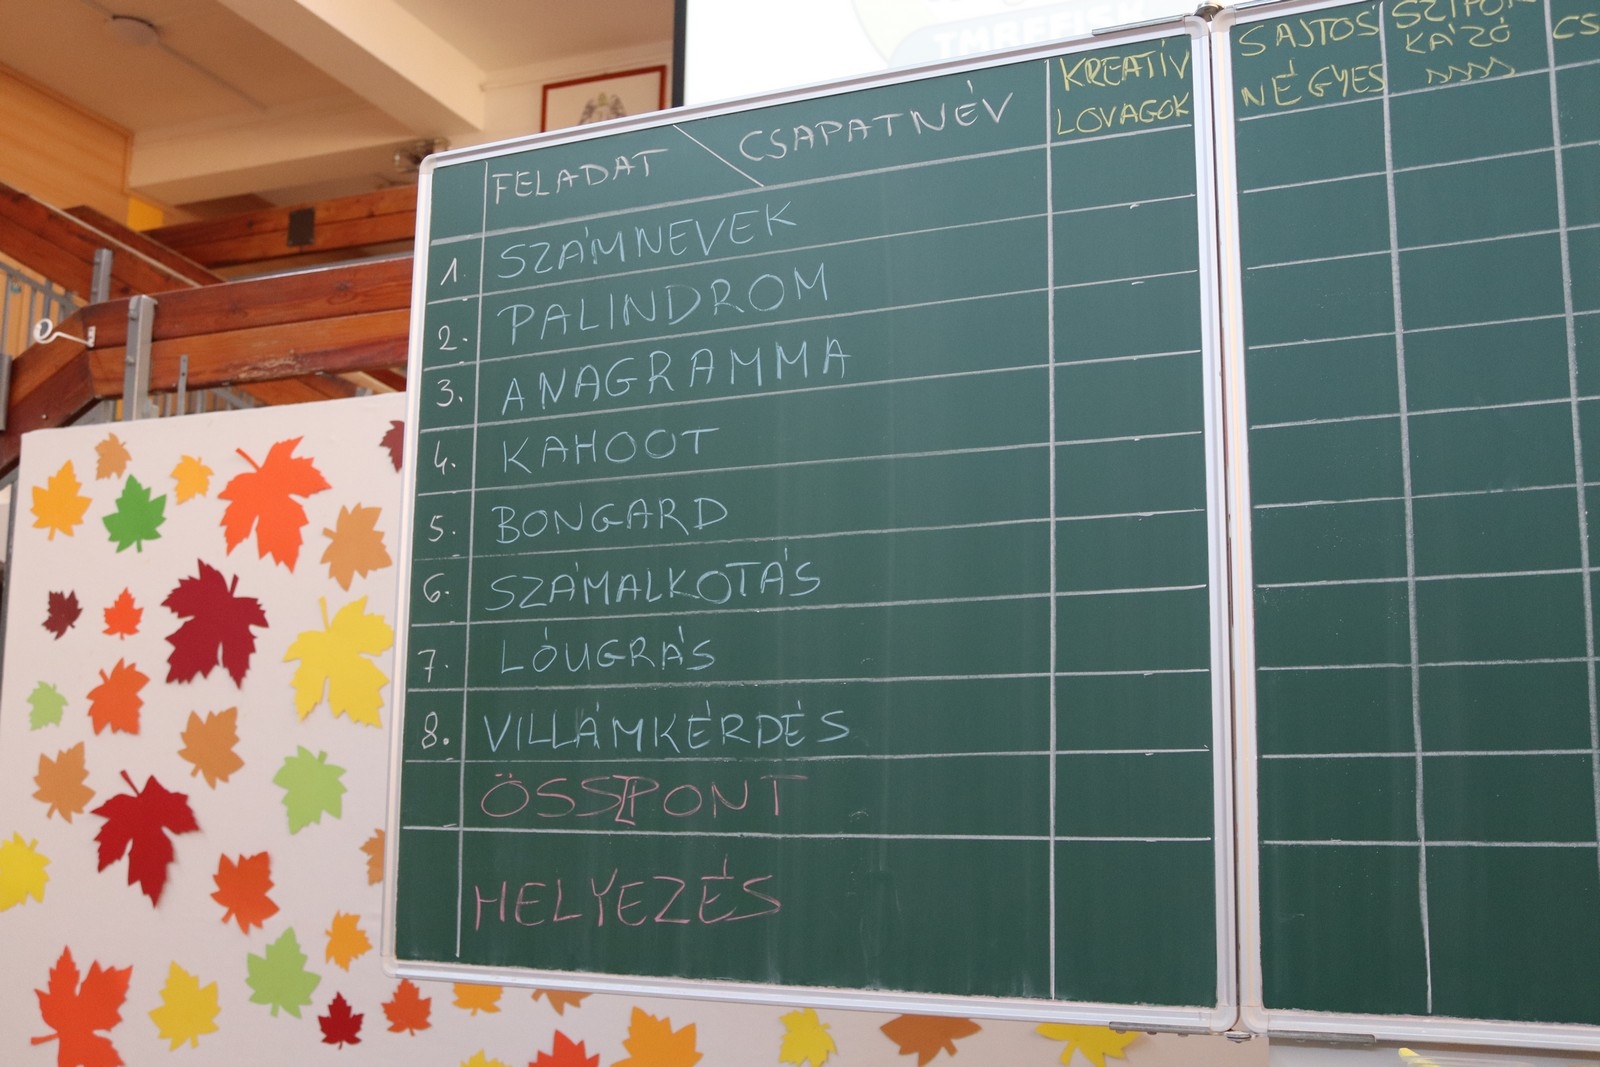 FELADAT \ CSAPATNÉV
KREATÍV
LOVAGOK
SAJTOS
NÉGYES
KÁZÓ
CS
1. SZÁMNEVEK
2. PALINDROM
3. ANAGRAMMA
4. KAHOOT
5. BONGARD
6. SZÁMALKOTÁS
7. LÓUGRÁS
8. VILLÁMKÉRDÉS
ÖSSZPONT
HELYEZÉS